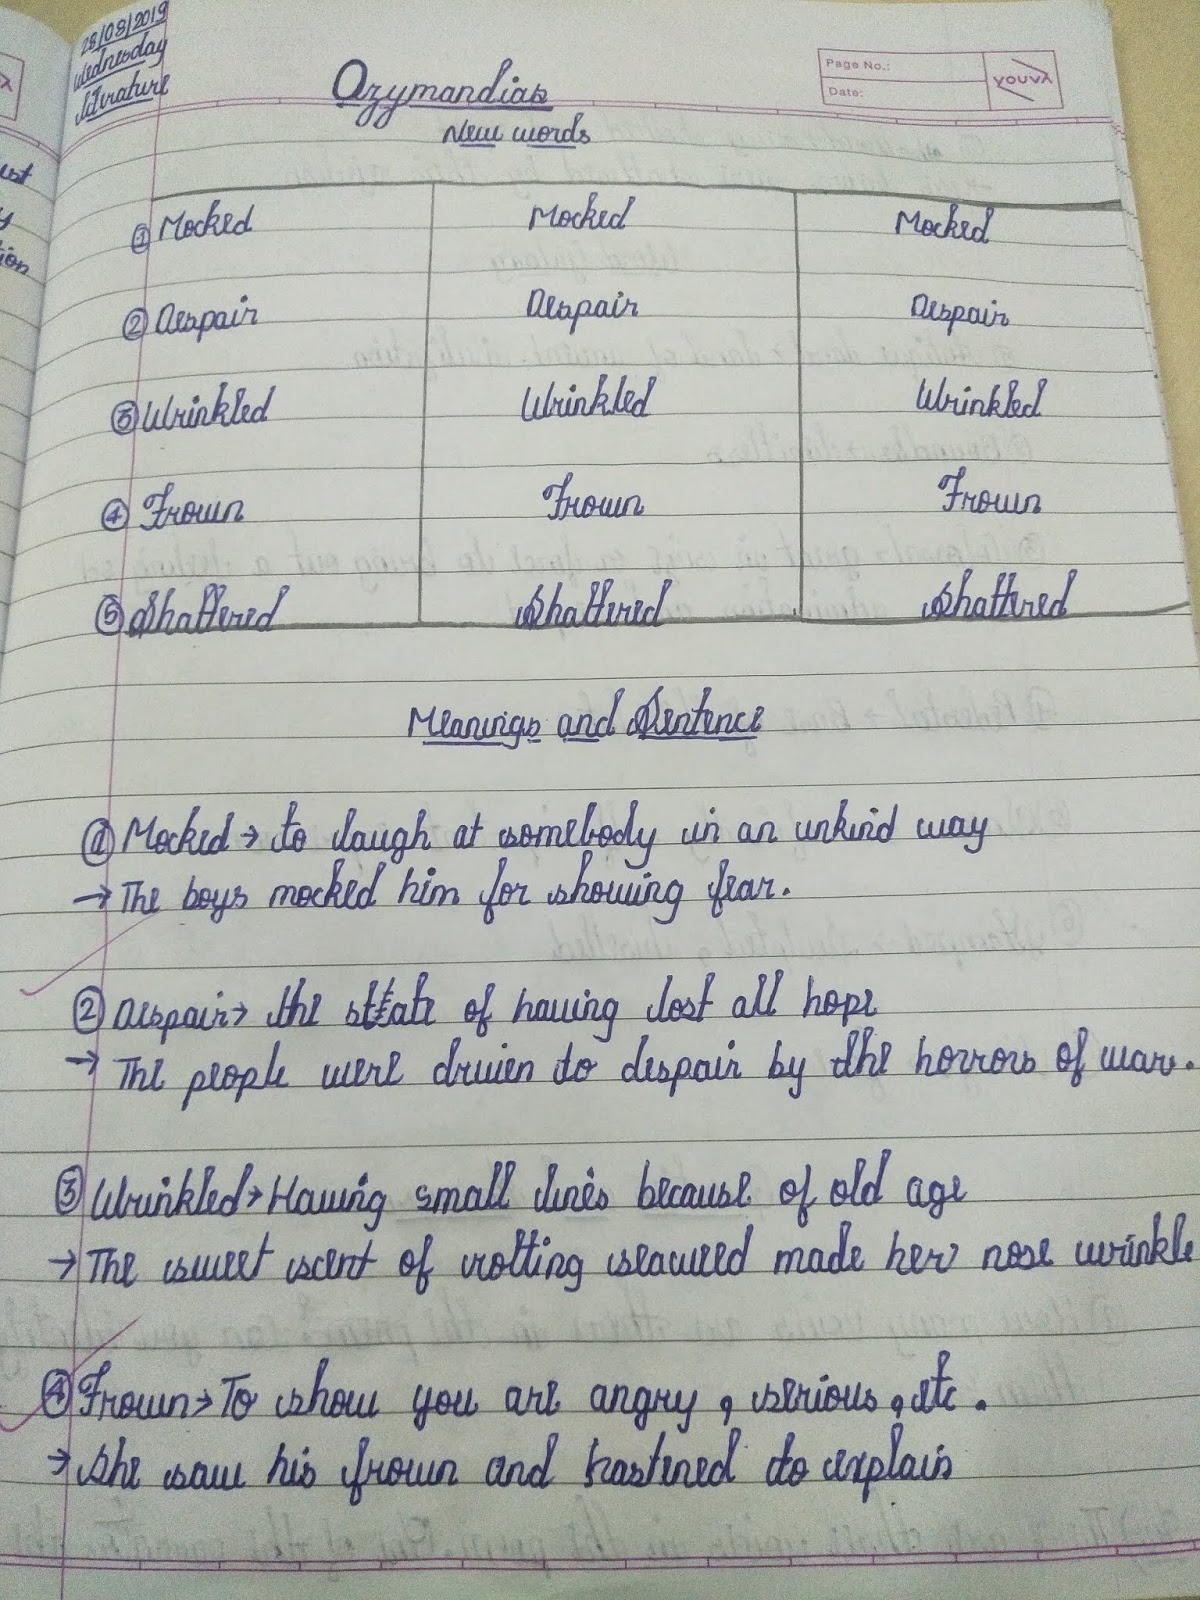 28/08/2019
Wednesday
Literature
Ozymandias
Page No.:
Date:
YOUVA
New words
① Mocked Mocked Mocked
② Despair Despair Despair
③ Wrinkled Wrinkled Wrinkled
④ Frown Frown Frown
⑤ Shattered Shattered Shattered
Meanings and Sentence
① Mocked → to laugh at somebody in an unkind way
→ The boys mocked him for showing fear.
② Despair → the state of having lost all hope
→ The people were driven to despair by the horrors of war.
③ Wrinkled → Having small lines because of old age
→ The sweet scent of rotting seaweed made her nose wrinkle
④ Frown → To show you are angry, serious, etc.
→ She saw his frown and hastened to explain